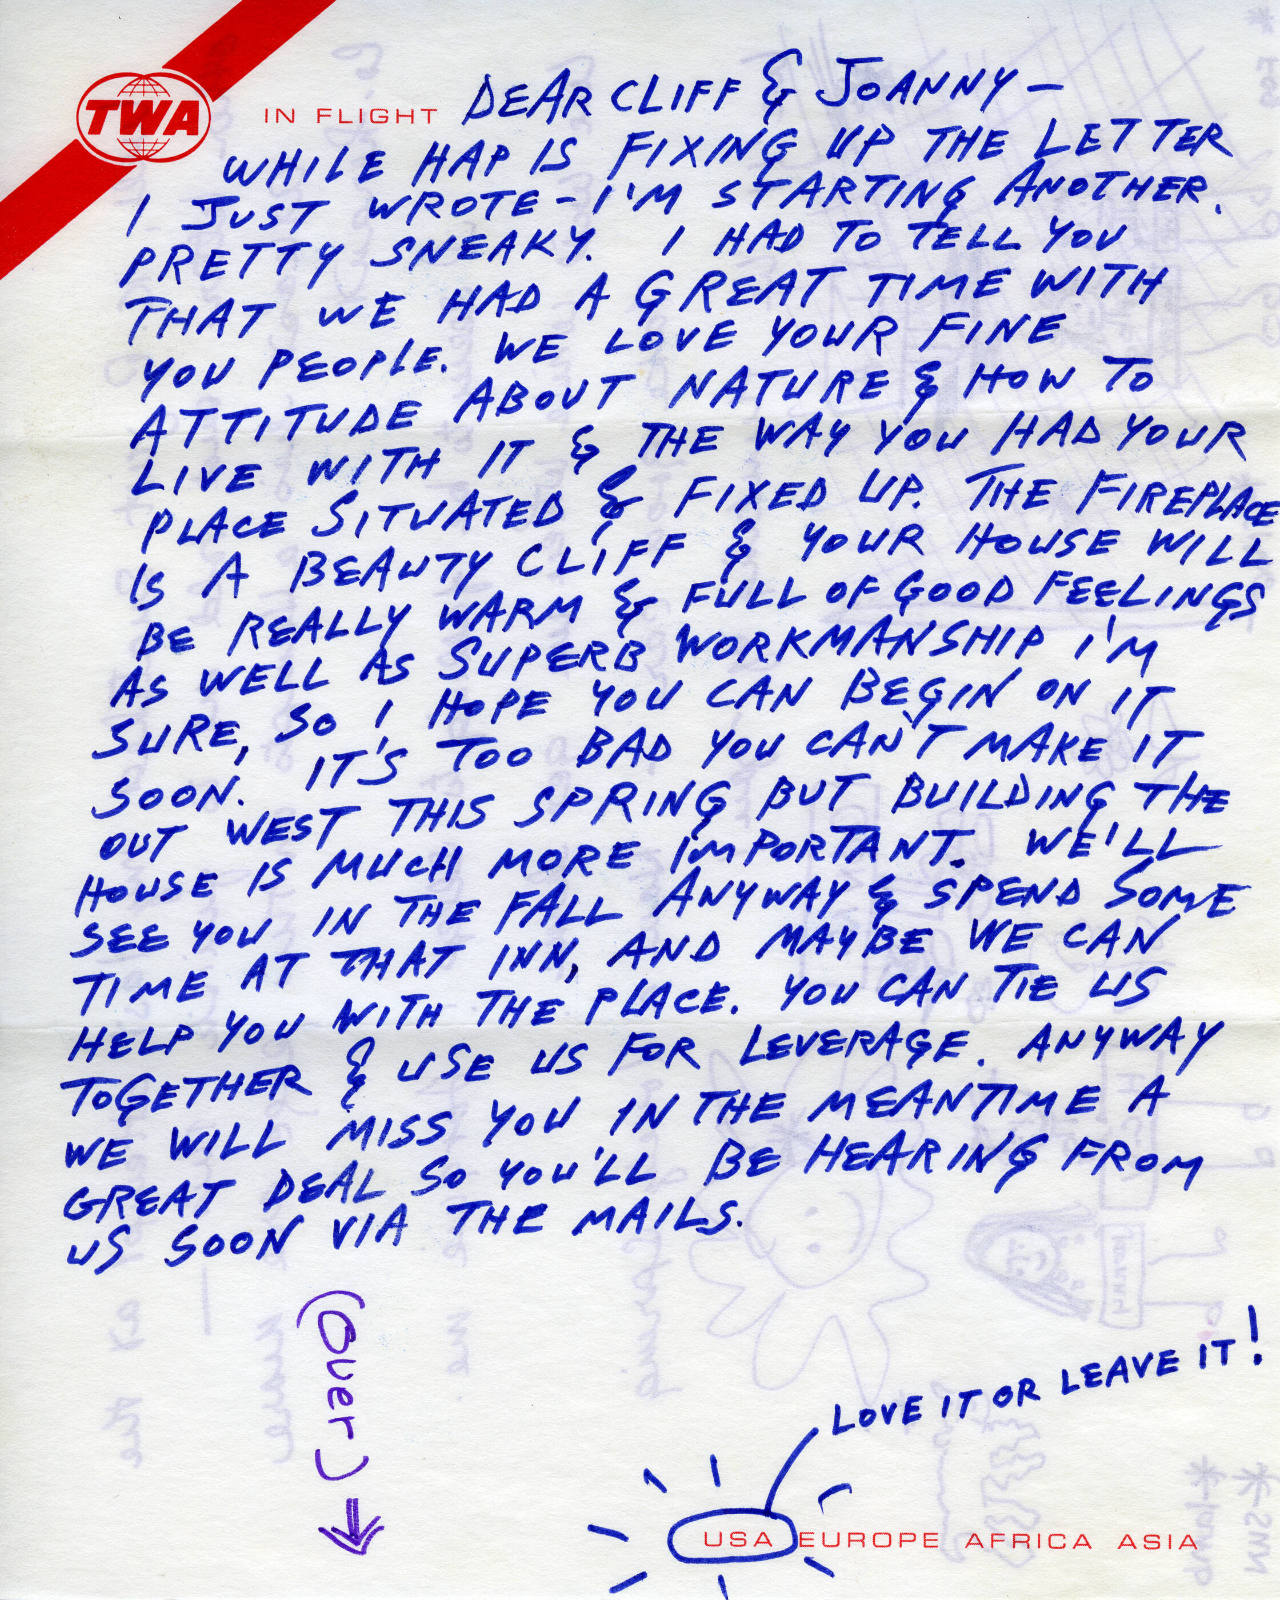 TWA
IN FLIGHT
DEAR CLIFF & JOANNY —
WHILE HAP IS FIXING UP THE LETTER
I JUST WROTE - I'M STARTING ANOTHER.
PRETTY SNEAKY. I HAD TO TELL YOU
THAT WE HAD A GREAT TIME WITH
YOU PEOPLE. WE LOVE YOUR FINE
ATTITUDE ABOUT NATURE & HOW TO
LIVE WITH IT & THE WAY YOU HAD YOUR
PLACE SITUATED & FIXED UP. THE FIREPLACE
IS A BEAUTY CLIFF & YOUR HOUSE WILL
BE REALLY WARM & FULL OF GOOD FEELINGS
AS WELL AS SUPERB WORKMANSHIP I'M
SURE, SO I HOPE YOU CAN BEGIN ON IT
SOON. IT'S TOO BAD YOU CAN'T MAKE IT
OUT WEST THIS SPRING BUT BUILDING THE
HOUSE IS MUCH MORE IMPORTANT. WE'LL
SEE YOU IN THE FALL ANYWAY & SPEND SOME
TIME AT THAT INN, AND MAYBE WE CAN
HELP YOU WITH THE PLACE. YOU CAN TIE US
TOGETHER & USE US FOR LEVERAGE. ANYWAY
WE WILL MISS YOU IN THE MEANTIME A
GREAT DEAL SO YOU'LL BE HEARING FROM
US SOON VIA THE MAILS.
(Over)
LOVE IT OR LEAVE IT!
USA EUROPE AFRICA ASIA